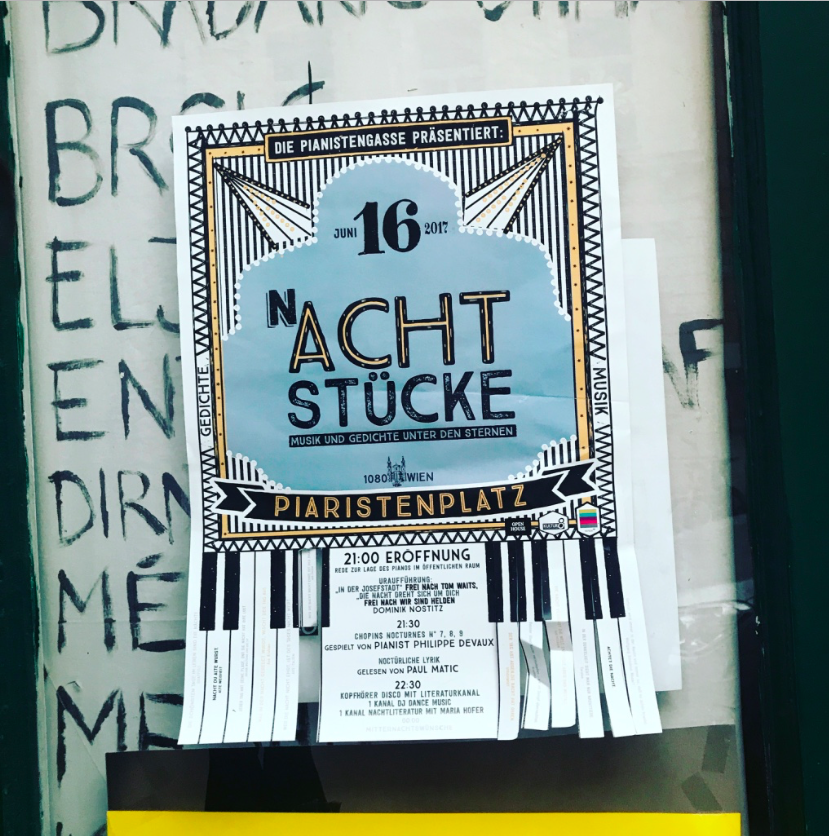 BROIĆ
ELJ
EN
DIRN
MÉ
ME
DIE PIANISTENGASSE PRÄSENTIERT:
JUNI 16 2017
NACHT
STÜCKE
MUSIK UND GEDICHTE UNTER DEN STERNEN
GEDICHTE
MUSIK
1080 WIEN
PIARISTENPLATZ
OPEN HOUSE
KULTUR 8
21:00 ERÖFFNUNG
REDE ZUR LAGE DES PIANOS IM ÖFFENTLICHEN RAUM
URAUFFÜHRUNG:
„IN DER JOSEFSTADT" FREI NACH TOM WAITS,
„DIE NACHT DREHT SICH UM DICH
FREI NACH WIR SIND HELDEN
DOMINIK NOSTITZ
21:30
CHOPINS NOCTURNES N° 7, 8, 9
GESPIELT VON PIANIST PHILIPPE DEVAUX
NOCTÜRLICHE LYRIK
GELESEN VON PAUL MATIC
22:30
KOPFHÖRER DISCO MIT LITERATURKANAL
1 KANAL DJ DANCE MUSIC
1 KANAL NACHTLITERATUR MIT MARIA HOFER